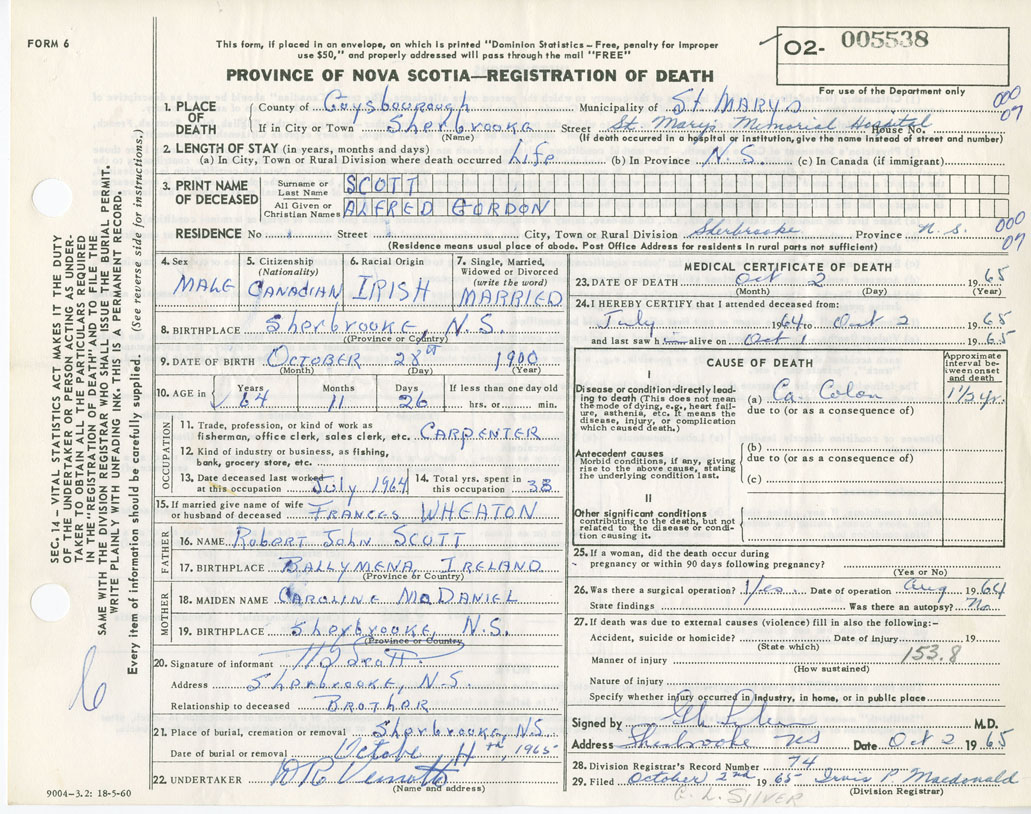 FORM 6
This form, if placed in an envelope, on which is printed "Dominion Statistics – Free, penalty for improper
use $50," and properly addressed will pass through the mail "FREE"
O2- 005538
For use of the Department only
PROVINCE OF NOVA SCOTIA—REGISTRATION OF DEATH
000
07
1. PLACE OF DEATH
County of Guysbourough Municipality of St. MARY'S
If in City or Town Sherbrooke Street St Mary's Memorial Hospital House No.
(Name) (If death occurred in a hospital or institution, give the name instead of street and number)
2. LENGTH OF STAY (in years, months and days)
(a) In City, Town or Rural Division where death occurred Life (b) In Province N.S. (c) In Canada (if immigrant)
3. PRINT NAME OF DECEASED
Surname or Last Name SCOTT
All Given or Christian Names ALFRED GORDON
RESIDENCE No Street City, Town or Rural Division Sherbrooke Province N.S.
000
07
(Residence means usual place of abode. Post Office Address for residents in rural parts not sufficient)
4. Sex
MALE
5. Citizenship
(Nationality)
CANADIAN
6. Racial Origin
IRISH
7. Single, Married,
Widowed or Divorced
(write the word)
MARRIED
8. BIRTHPLACE Sherbrooke, N.S.
(Province or Country)
9. DATE OF BIRTH October 28th 1900
(Month) (Day) (Year)
10. AGE in
Years Months Days If less than one day old
64 11 26 hrs. or min.
OCCUPATION
11. Trade, profession, or kind of work as
fisherman, office clerk, sales clerk, etc. CARPENTER
12. Kind of industry or business, as fishing,
bank, grocery store, etc.
13. Date deceased last worked
at this occupation July 1964
14. Total yrs. spent in
this occupation 38
15. If married give name of wife
or husband of deceased FRANCES WHEATON
FATHER
16. NAME Robert John SCOTT
17. BIRTHPLACE BALLYMENA IRELAND
(Province or Country)
MOTHER
18. MAIDEN NAME CAROLINE McDANIEL
19. BIRTHPLACE Sherbrooke, N.S.
(Province or Country)
20. Signature of informant Scott
Address Sherbrooke, N.S.
Relationship to deceased BROTHER
21. Place of burial, cremation or removal Sherbrooke, N.S
Date of burial or removal October 4th, 1965
22. UNDERTAKER
(Name and address)
9004–3.2: 18-5-60
MEDICAL CERTIFICATE OF DEATH
23. DATE OF DEATH Oct 2 1965
(Month) (Day) (Year)
24. I HEREBY CERTIFY that I attended deceased from:
July 1964 to Oct 2 1965
and last saw h alive on Oct 1 1965
CAUSE OF DEATH
Approximate
interval be-
tween onset
and death
I
Disease or condition directly lead-
ing to death (This does not mean
the mode of dying, e.g., heart fail-
ure, asthenia, etc. It means the
disease, injury, or complication
which caused death.)
(a) Ca. Colon 1 1/2 yr.
due to (or as a consequence of)
Antecedent causes
Morbid conditions, if any, giving
rise to the above cause, stating
the underlying condition last.
(b)
due to (or as a consequence of)
(c)
II
Other significant conditions
contributing to the death, but not
related to the disease or condi-
tion causing it.
25. If a woman, did the death occur during
pregnancy or within 90 days following pregnancy?
(Yes or No)
26. Was there a surgical operation? Yes Date of operation Aug 1964
State findings Was there an autopsy? No
27. If death was due to external causes (violence) fill in also the following:–
Accident, suicide or homicide? Date of injury 19
(State which)
153.8
Manner of injury
(How sustained)
Nature of injury
Specify whether injury occurred in industry, in home, or in public place
Signed by M.D.
Address Sherbrooke NS Date Oct 2 1965
28. Division Registrar's Record Number 74
29. Filed October 2nd 1965 Irvis P. Macdonald
(Division Registrar)
C. L. SILVER
SEC. 14 – VITAL STATISTICS ACT MAKES IT THE DUTY
OF THE UNDERTAKER OR PERSON ACTING AS UNDER-
TAKER TO OBTAIN ALL THE PARTICULARS REQUIRED
IN THE "REGISTRATION OF DEATH" AND TO FILE THE
SAME WITH THE DIVISION REGISTRAR WHO SHALL ISSUE THE BURIAL PERMIT.
WRITE PLAINLY WITH UNFADING INK. THIS IS A PERMANENT RECORD.
Every item of information should be carefully supplied. (See reverse side for instructions.)